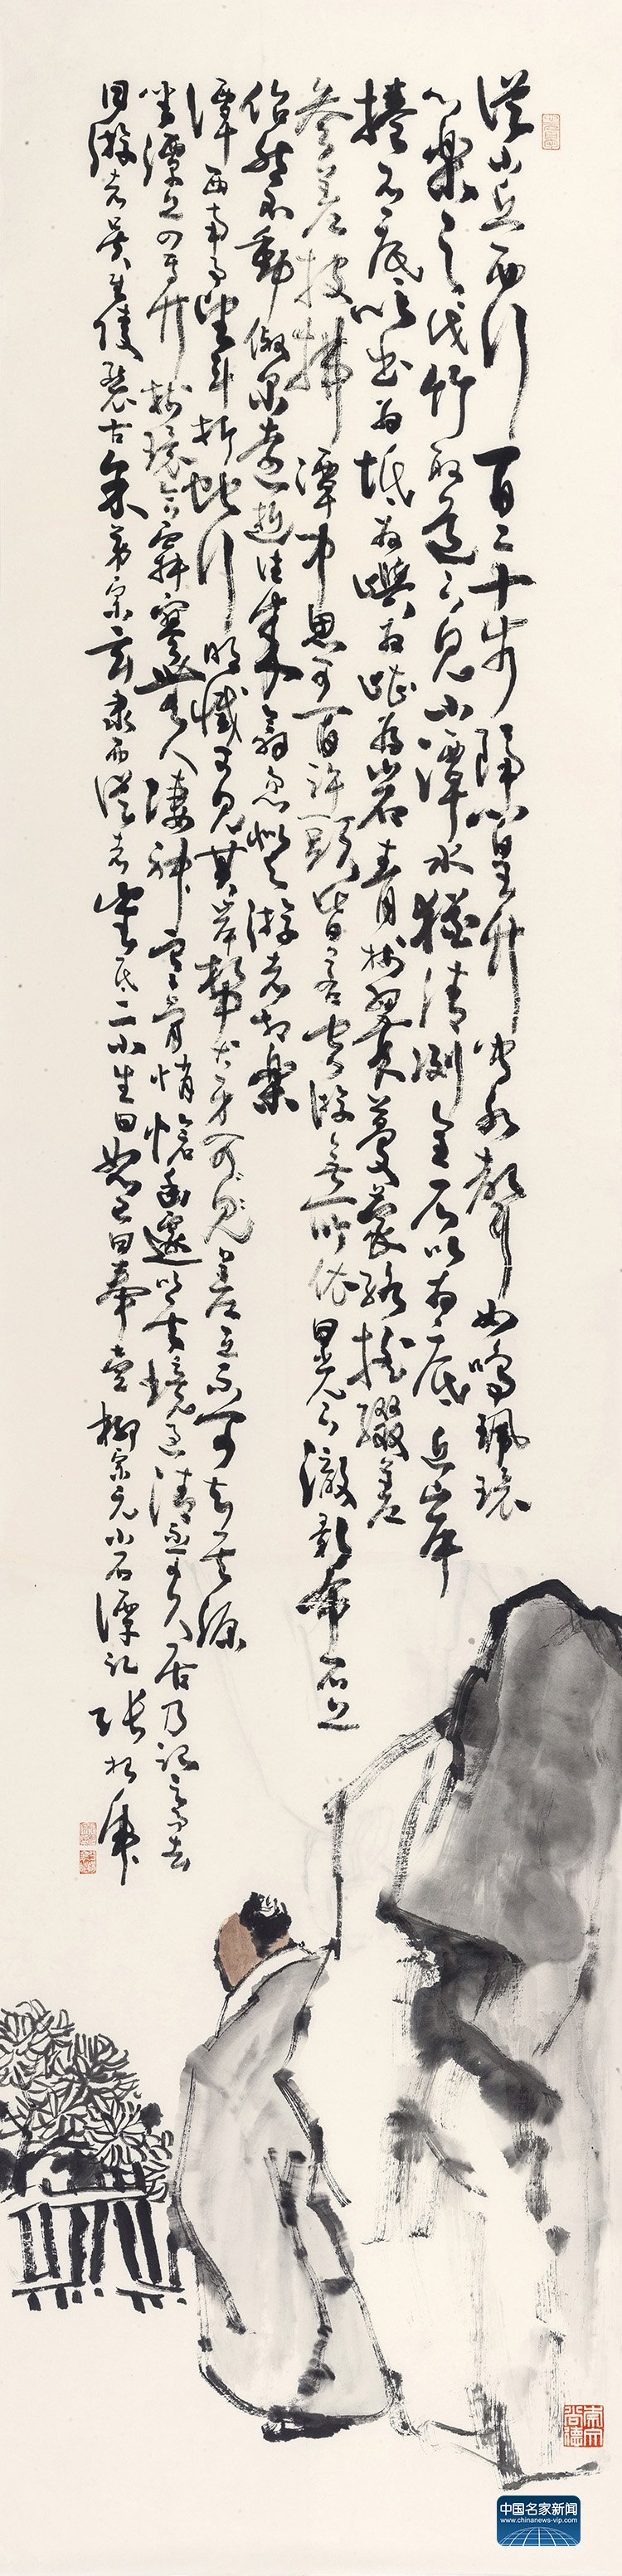 從小丘西行百二十步隔篁竹聞水聲如鳴珮環
心樂之伐竹取道下見小潭水猶清洌全石以為底近岸
捲石底以出為坻為嶼為嵁為岩青樹翠蔓蒙絡搖綴差
參差披拂潭中魚可百許頭皆若空游無所依日光下澈影布石上
佁然不動俶尔遠逝往來翕忽似與游者相樂
潭西南而望斗折蛇行明滅可見其岸勢犬牙可見差互不可知其源
坐潭上四面竹樹環合寂寥無人凄神寒骨悄愴幽邃以其境過清不可久居乃記之而去
同游者吳武陵龔古余弟宗玄隸而從者崔氏二小生曰恕己曰奉壹柳宗元小石潭記
中国名家新闻
www.chinanews-vip.com